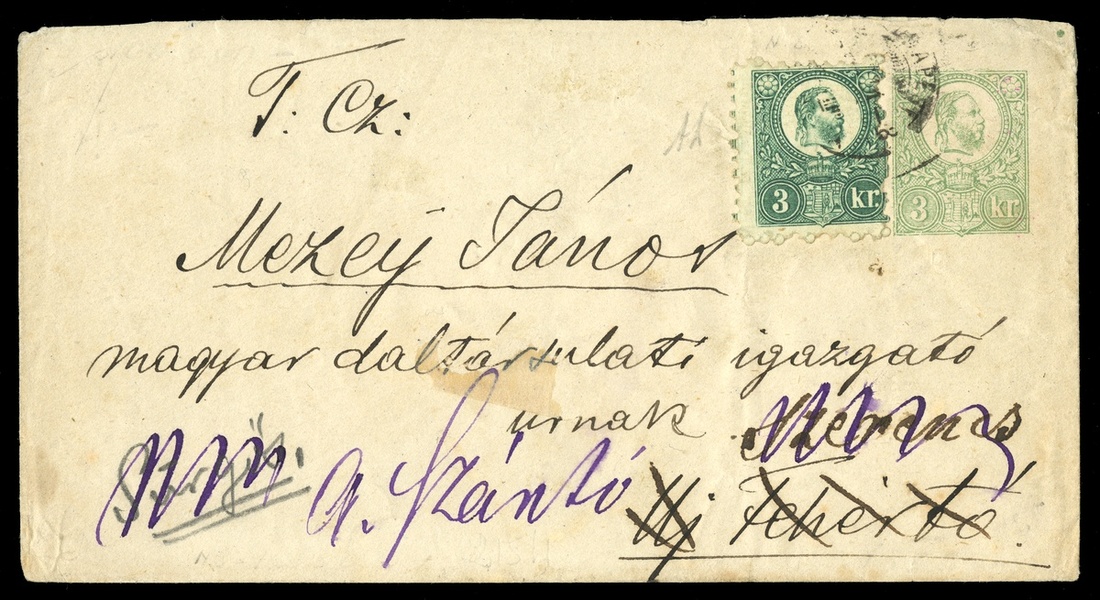 T: Cz:
3 kr. 3 kr.
Mezey János
magyar daltársulati igazgató
urnak
A. Szántó
Uj Fehértó.